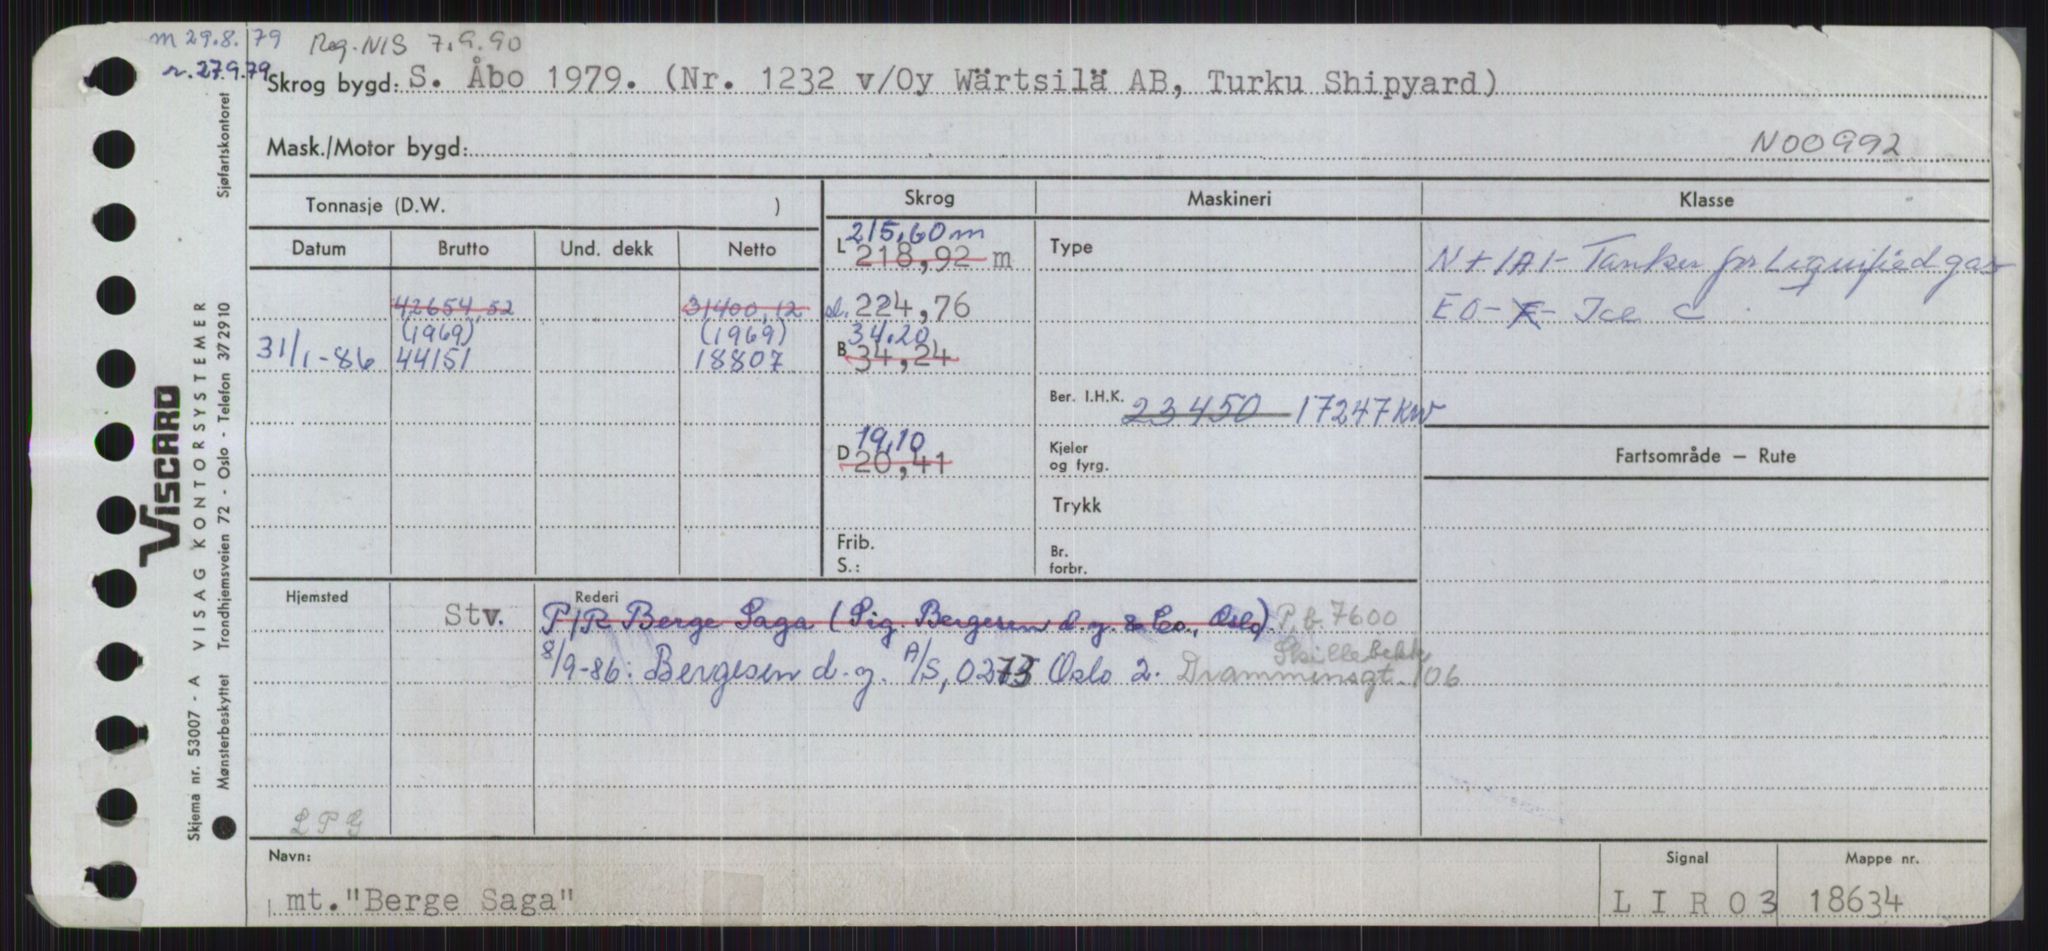 m 29.8.79 Reg. NIS 7.9.90
r. 27.9.79
Skrog bygd: S. Åbo 1979. (Nr. 1232 v/Oy Wärtsilä AB, Turku Shipyard)
Mask./Motor bygd: N00992
Tonnasje (D.W. ) Skrog Maskineri Klasse
Datum Brutto Und. dekk Netto
215,60 m
L 218,92 m Type N + 1A1 - Tanker for Liquified gas
42654,52 31400,12 sl. 224,76 EO - F - Ice C
(1969) (1969) 34,20
31/1-86 44151 18807 B 34,24
Ber. I.H.K. 23450 17247 KW
19,10
D 20,41 Kjeler og fyrg. Fartsområde — Rute
Trykk
Frib. Br. forbr.
S.:
Hjemsted Rederi
Stv. P/R Berge Saga (Sig. Bergesen d.y. & Co., Oslo). P.b. 7600
Skillebekk
8/9-86: Bergesen d.y. A/S, 0273 Oslo 2. Drammensgt. 106
LPG
Navn: Signal Mappe nr.
mt. "Berge Saga" L I R O 3 18634
Sjøfartskontoret
VISCARD
VISAG KONTORSYSTEMER
Trondhjemsveien 72 - Oslo - Telefon 37 29 10
Skjema nr. 53007 - A
Mønsterbeskyttet